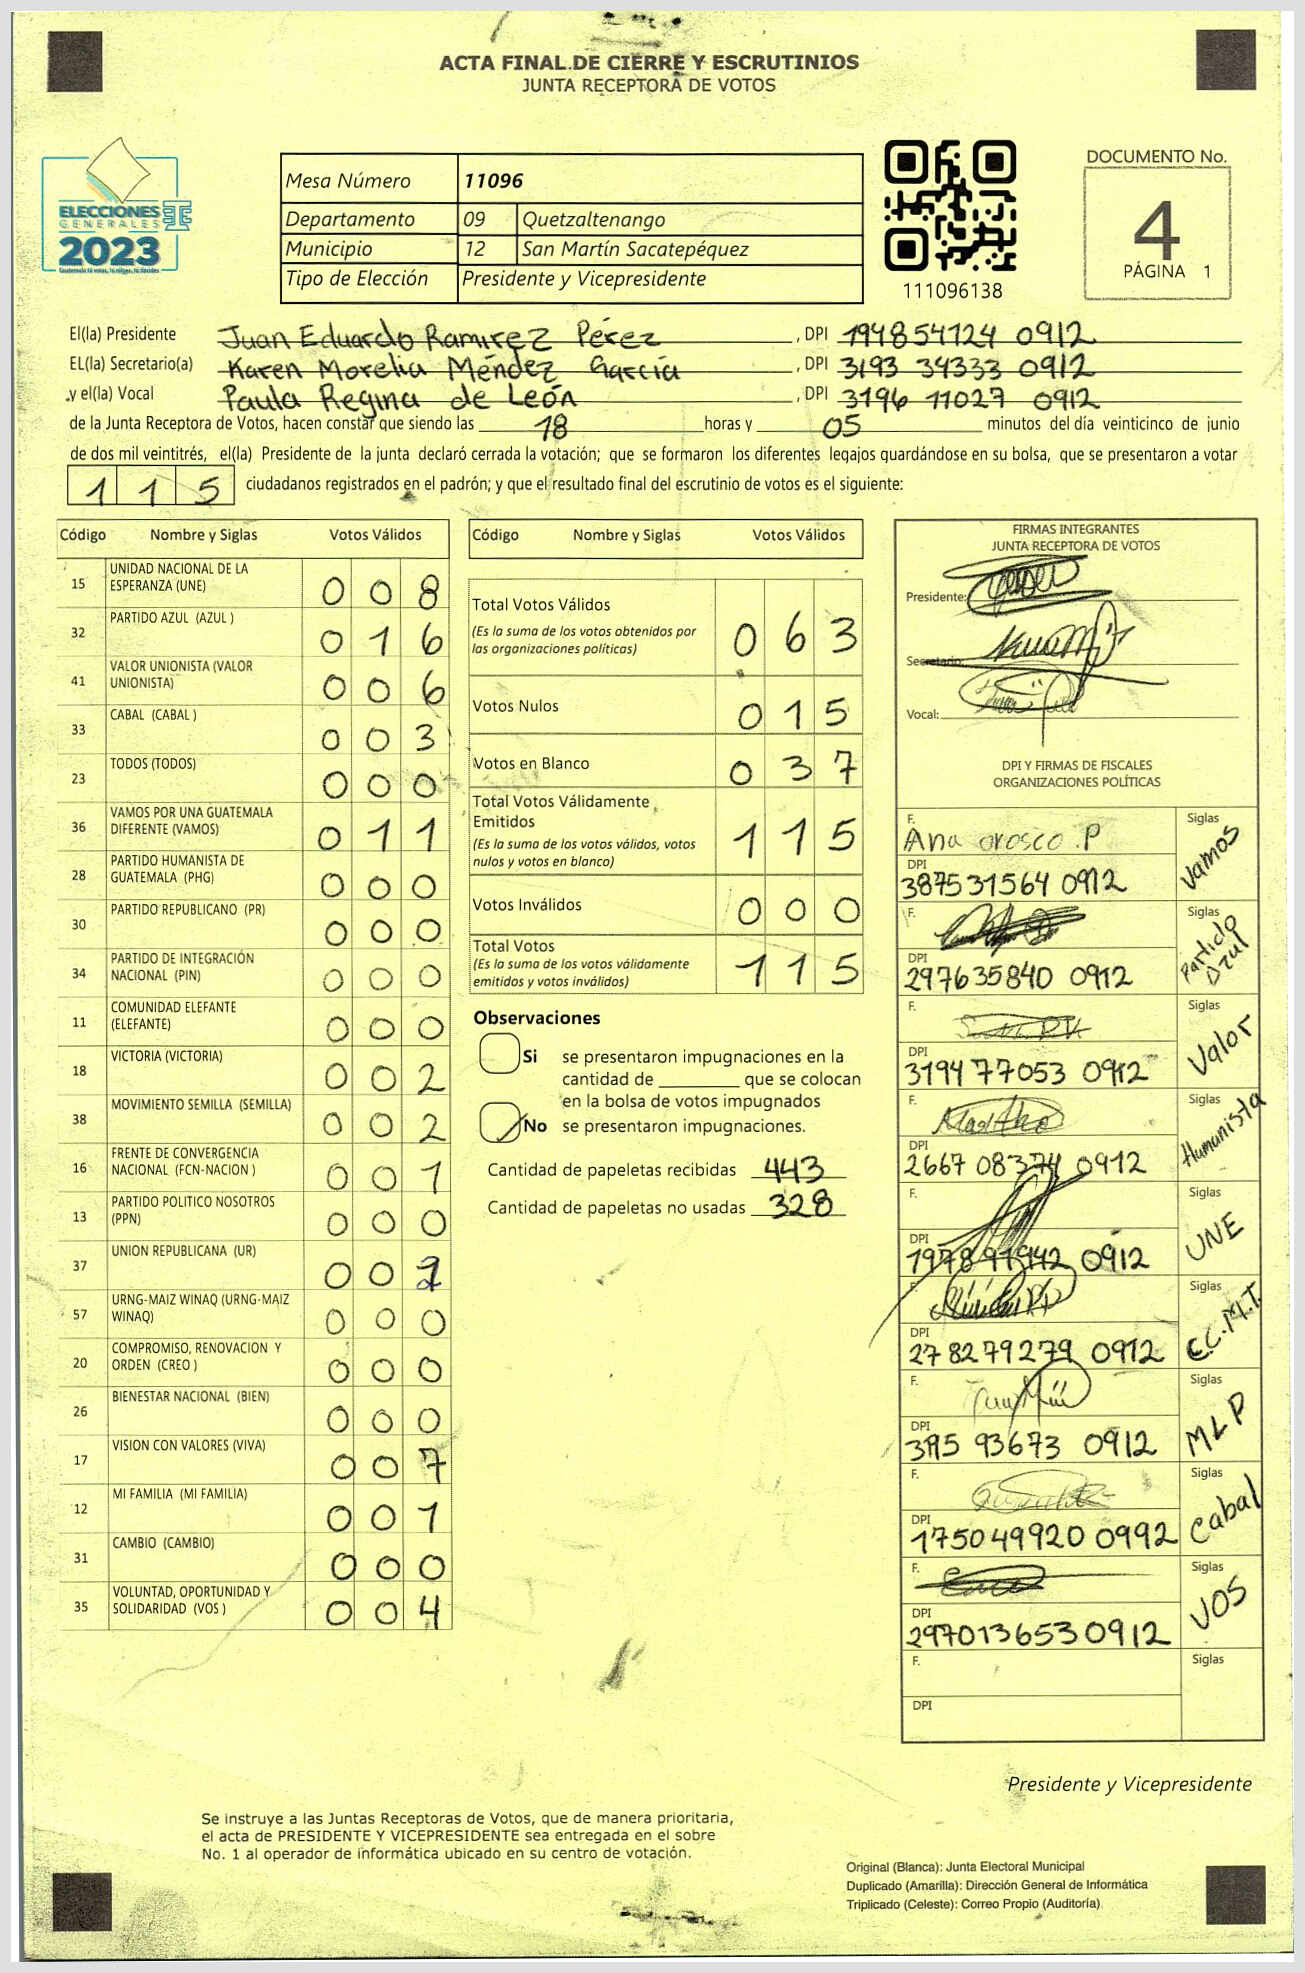 ACTA FINAL DE CIERRE Y ESCRUTINIOS
JUNTA RECEPTORA DE VOTOS
ELECCIONES
GENERALES
2023
Mesa Número 11096
Departamento 09 Quetzaltenango
Municipio 12 San Martín Sacatepéquez
Tipo de Elección Presidente y Vicepresidente
111096138
DOCUMENTO No.
4
PÁGINA 1
El(la) Presidente Juan Eduardo Ramirez Pérez, DPI 194854724 0912
EL(la) Secretario(a) Karen Morelia Méndez García, DPI 3193 34333 0912
y el(la) Vocal Paula Regina de León, DPI 3196 11027 0912
de la Junta Receptora de Votos, hacen constar que siendo las 18 horas y 05 minutos del día veinticinco de junio
de dos mil veintitrés, el(la) Presidente de la junta declaró cerrada la votación; que se formaron los diferentes legajos guardándose en su bolsa, que se presentaron a votar
115 ciudadanos registrados en el padrón; y que el resultado final del escrutinio de votos es el siguiente:
Código Nombre y Siglas Votos Válidos
15 UNIDAD NACIONAL DE LA ESPERANZA (UNE) 0 0 8
32 PARTIDO AZUL (AZUL ) 0 1 6
41 VALOR UNIONISTA (VALOR UNIONISTA) 0 0 6
33 CABAL (CABAL ) 0 0 3
23 TODOS (TODOS) 0 0 0
36 VAMOS POR UNA GUATEMALA DIFERENTE (VAMOS) 0 1 1
28 PARTIDO HUMANISTA DE GUATEMALA (PHG) 0 0 0
30 PARTIDO REPUBLICANO (PR) 0 0 0
34 PARTIDO DE INTEGRACIÓN NACIONAL (PIN) 0 0 0
11 COMUNIDAD ELEFANTE (ELEFANTE) 0 0 0
18 VICTORIA (VICTORIA) 0 0 2
38 MOVIMIENTO SEMILLA (SEMILLA) 0 0 2
16 FRENTE DE CONVERGENCIA NACIONAL (FCN-NACION ) 0 0 1
13 PARTIDO POLITICO NOSOTROS (PPN) 0 0 0
37 UNION REPUBLICANA (UR) 0 0
57 URNG-MAIZ WINAQ (URNG-MAIZ WINAQ) 0 0 0
20 COMPROMISO, RENOVACION Y ORDEN (CREO ) 0 0 0
26 BIENESTAR NACIONAL (BIEN) 0 0 0
17 VISION CON VALORES (VIVA) 0 0 7
12 MI FAMILIA (MI FAMILIA) 0 0 1
31 CAMBIO (CAMBIO) 0 0 0
35 VOLUNTAD, OPORTUNIDAD Y SOLIDARIDAD (VOS ) 0 0 4
Código Nombre y Siglas Votos Válidos
Total Votos Válidos 0 6 3
(Es la suma de los votos obtenidos por
las organizaciones políticas)
Votos Nulos 0 1 5
Votos en Blanco 0 3 7
Total Votos Válidamente
Emitidos 1 1 5
(Es la suma de los votos válidos, votos
nulos y votos en blanco)
Votos Inválidos 0 0 0
Total Votos 1 1 5
(Es la suma de los votos válidamente
emitidos y votos inválidos)
Observaciones
Si se presentaron impugnaciones en la
cantidad de ________ que se colocan
en la bolsa de votos impugnados
No se presentaron impugnaciones.
Cantidad de papeletas recibidas 443
Cantidad de papeletas no usadas 328
FIRMAS INTEGRANTES
JUNTA RECEPTORA DE VOTOS
Presidente:
Secretario:
Vocal:
DPI Y FIRMAS DE FISCALES
ORGANIZACIONES POLÍTICAS
F. Ana orosco .P Siglas Vamos
DPI 387531564 0912
F. Siglas Partido Azul
DPI 297635840 0912
F. Siglas Valor
DPI 3194 77053 0912
F. Siglas Humanista
DPI 2667 08374 0912
F. Siglas UNE
DPI 0912
F. Siglas E.C.M.I.T.
DPI 278279279 0912
F. Siglas MLP
DPI 93673 0912
F. Siglas Cabal
DPI 175049920 0992
F. Siglas VOS
DPI 297013653 0912
F. Siglas
DPI
Presidente y Vicepresidente
Se instruye a las Juntas Receptoras de Votos, que de manera prioritaria,
el acta de PRESIDENTE Y VICEPRESIDENTE sea entregada en el sobre
No. 1 al operador de informática ubicado en su centro de votación.
Original (Blanca): Junta Electoral Municipal
Duplicado (Amarilla): Dirección General de Informática
Triplicado (Celeste): Correo Propio (Auditoría)